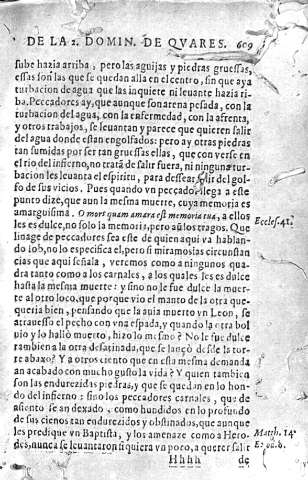 DE LA 2. DOMIN. DE QVARES. 609
sube hazia arriba, pero las aguijas y piedras gruessas,
essas son las que se quedan alla en el centro, sin que aya
turbacion de agua que las inquiete ni leuante hazia ri-
ba. Peccadores ay, que aunque son arena pesada, con la
turbacion del agua, con la enfermedad, con la afrenta,
y otros trabajos, se leuantan y parece que quieren salir
del agua donde estan engolfados: pero ay otras piedras
tan sumidas por ser tan gruessas ellas, que con verse en
el rio del infierno, no tratã de salir fuera, ni ninguna tur-
bacion les leuanta el espiritu, para dessear salir del gol-
fo de sus vicios. Pues quando vn peccador llega a este
punto dize, que aun la mesma muerte, cuya memoria es
amarguissima. O mors quam amara est memoria tua, a ellos
les es dulce, no solo la memoria, pero aũ los tragos. Que
linage de peccadores sea este de quien aqui va hablan-
do Iob, no lo especifica el, pero si miramos las circunstan
cias que aqui señala, veremos como a ningunos qua-
dra tanto como a los carnales, a los quales les es dulce
hasta la mesma muerte: y sino no le fue dulce la muer-
te al otro loco, que porque vio el manto de la otra que-
queria bien, pensando que la auia muerto vn Leon, se
atrauesso el pecho con vna espada, y quando la otra bol
uio y lo halló muerto, hizo lo mismo? No le fue dulce
tambien a la otra desatinada, que se lançò desde la tor-
re abaxo? Y a otros ciento que en esta mesma demanda
an acabado con mucho gusto la vida? Y quien tambien
son las endurezidas piedras, y que se quedan en lo hon-
do del infierno: sino los peccadores carnales, que de
asiento se an dexado, como hundidos en lo profundo
de sus cienos tan endurezidos y obstinados, que aunque
les predique vn Baptista, y los amenaze como a Hero-
des, nunca se leuantaron si quiera vn poco, a querer salir
Hhhh de
Eccles. 41.
Matth. 14.